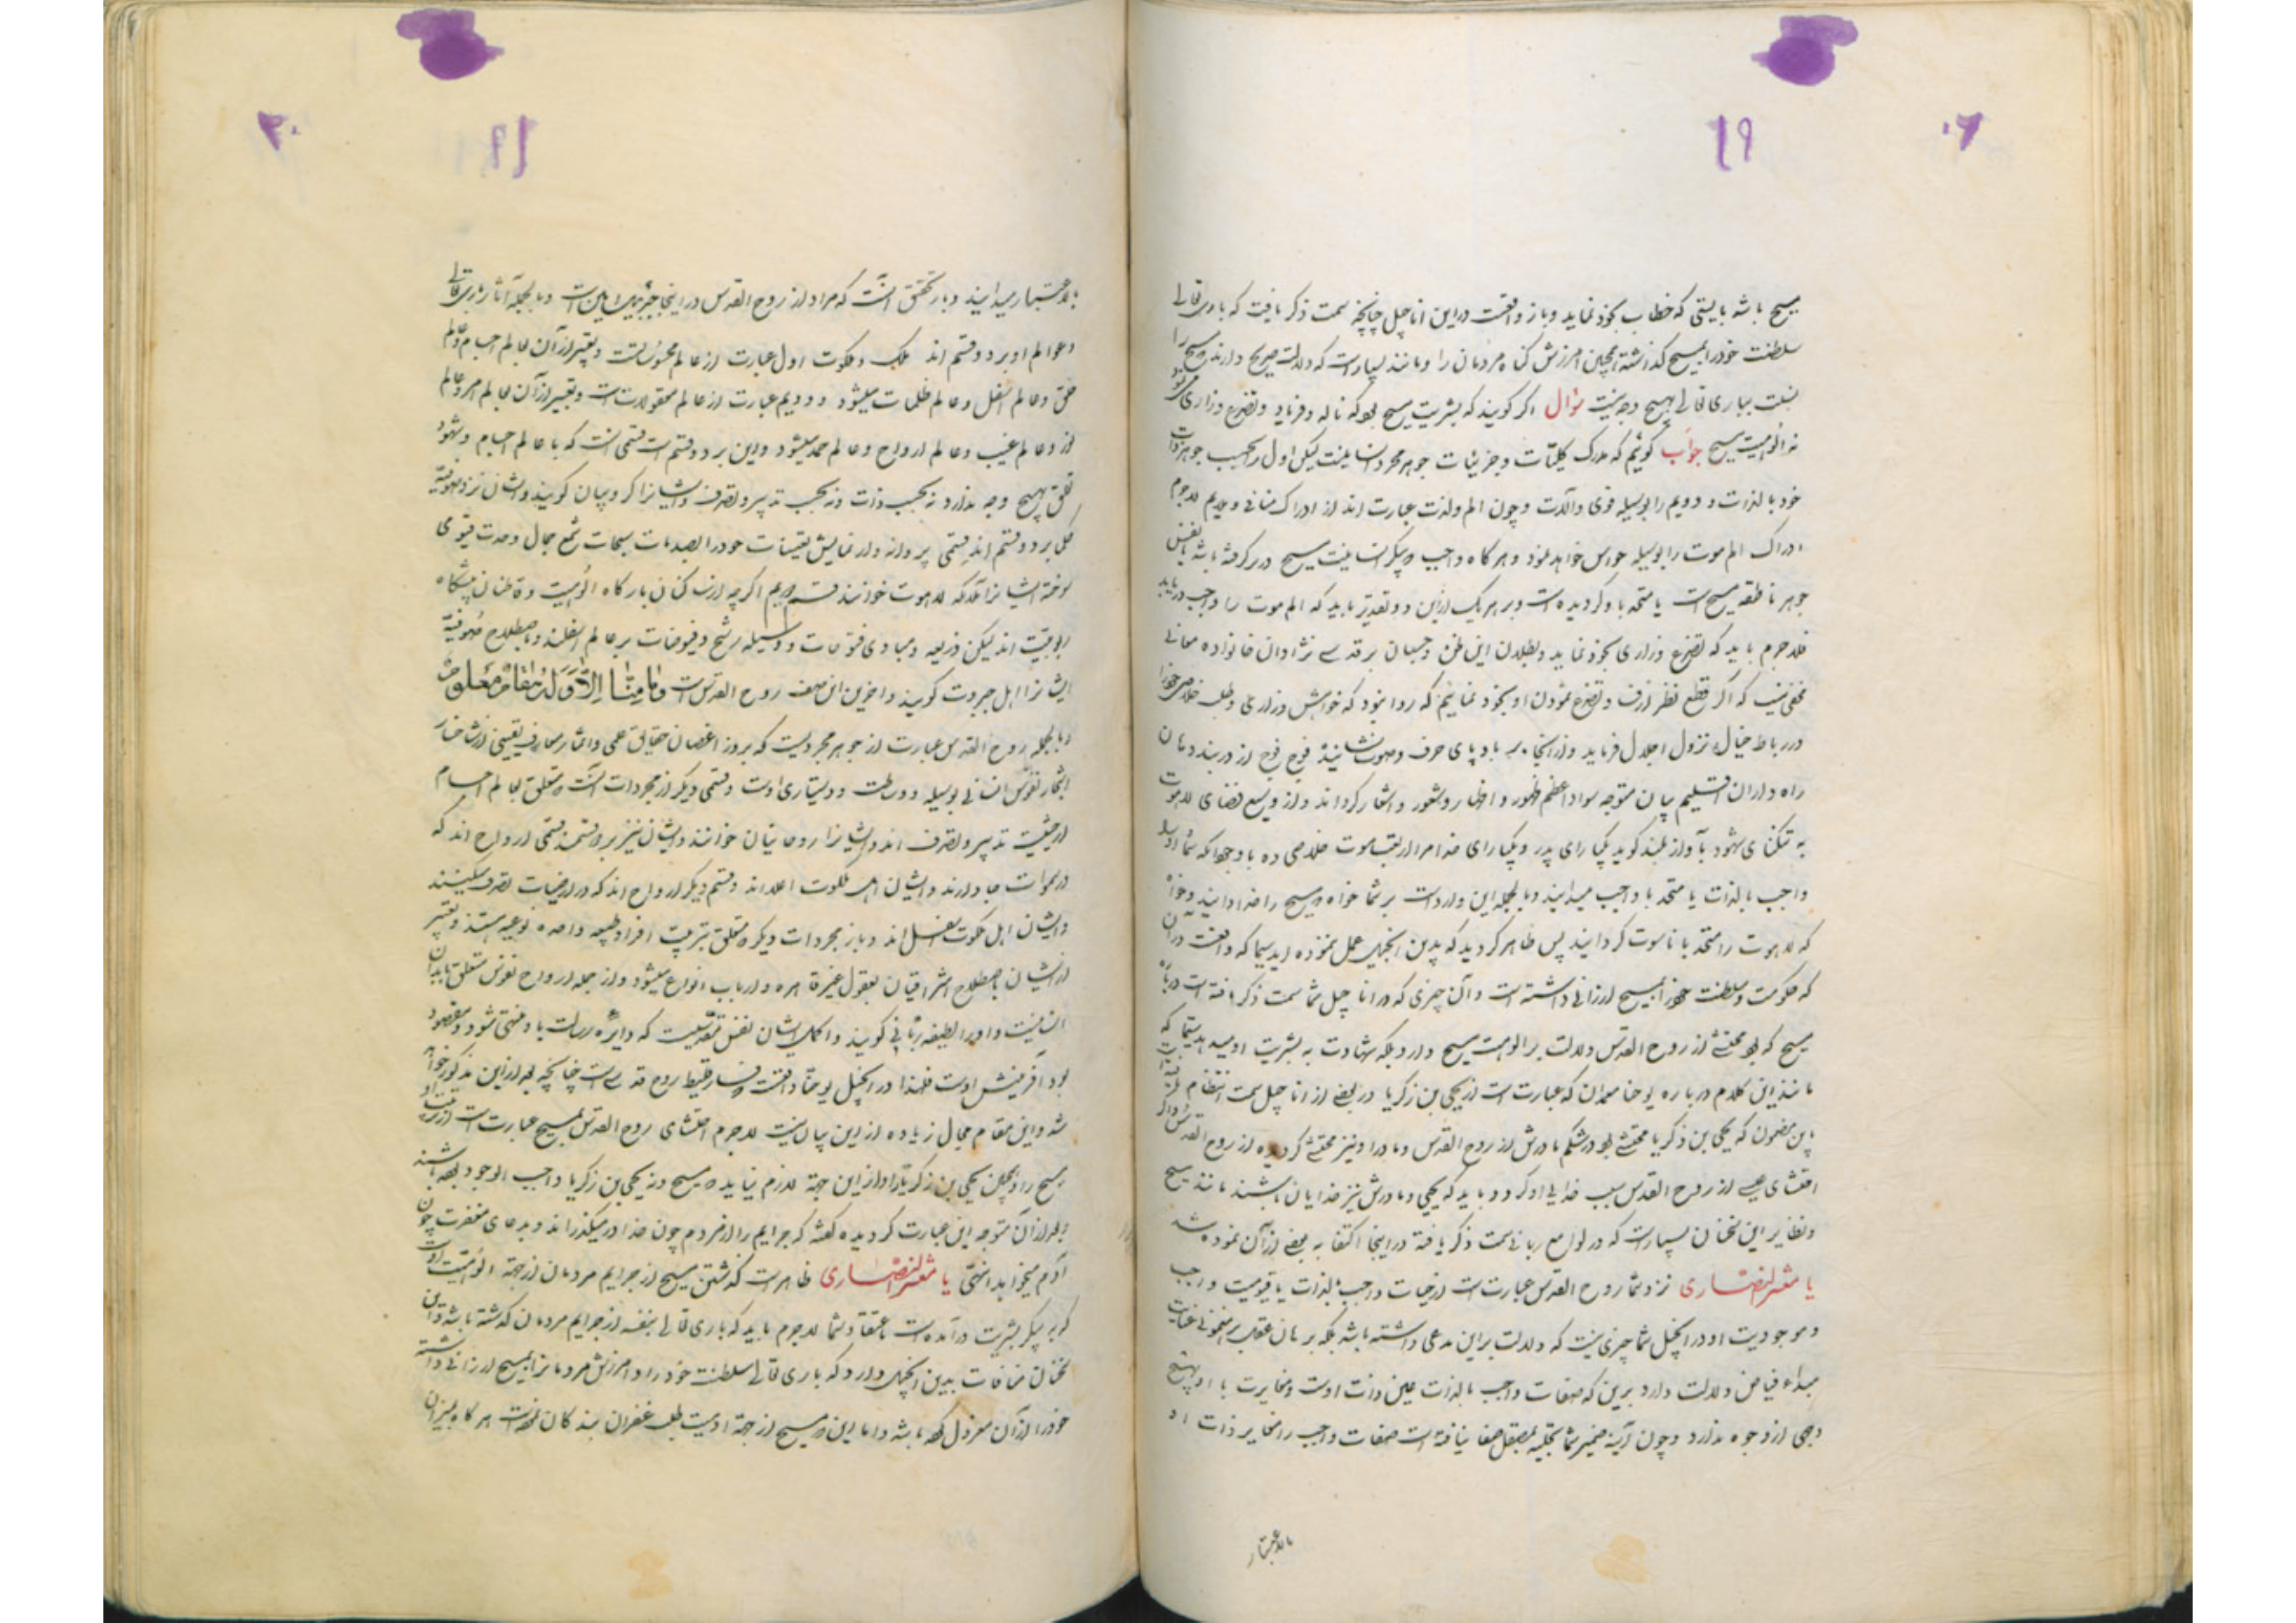 ۱۹
مسیح باشد بایستی که خطاب بخود نماید و باز واقعست در این اناجیل چنانچه سمت ذکر یافت که باری تعالی
سلطنت خود را بمسیح گذاشته همچنین امرزش گناه مردمان را و مانند بسیارست که دلالت صریح دارند مسیح را
بباری تعالی بهیچ وجه نیست سؤال اگر گویند که بشریت مسیح بود که ناله و فریاد و تضرع و زاری
نه الوهیت مسیح جواب گوئیم که مدرک کلیات و جزئیات جوهر مجرد انسانیت لیکن اول را بحسب جوهر ذات
خود بالذات و دویم را بوسیله قوی و آلات و چون الم و لذت عبارت اند از ادراک منافی و ملایم لاجرم
ادراک الم موت را بوسیله حواس خواهد نمود و هر گاه واجب پیکر انسانیت مسیح در بر گرفته باشد یا نفس
جوهر ناطقه مسیح است یا متحد باو گردیده است و بر هر یک از این دو تقدیر باید که الم موت را واجب دریابد
فلاجرم باید که تضرع و زاری بخود نماید و بطلان این ظن و حسبان بر قدسی نژادان خانواده معانی
مخفی نیست که اگر قطع نظر از و تضرع نمودن او بخود نمائیم که روا بود که خواهش و زاری و طلب خلاصی خود را
در رباط خیال نزول اجلال فرماید و از انجا باد پای حرف و صوت نشانیده فوج فوج از دربند دهان
راه داران اقلیم بیان متوجه سواد اعظم ظهور و اظهار و شعور و اشعار گرداند و از وسیع فضای لاهوت
به تنکنای شهود بآواز بلند گوید یکبار ای پدر و یکبار ای خدا مرا از تعب موت خلاصی ده با وجود آنکه شما او را
واجب بالذات یا متحد با واجب میدانید و بالجمله این واردست بر شما خواه مسیح را خدا دانید و خواه
که لاهوت را متحد با ناسوت گردانید پس ظاهر گردید که بدین انجیل عمل ننموده اید سیما که واقعست در آن
که حکومت و سلطنت خود را بمسیح ارزانی داشته است و آن چیزی که در اناجیل شما سمت ذکر یافته است در باره
مسیح که بود ممتلی از روح القدس دلالت بر الوهیت مسیح دارد بلکه شهادت به بشریت او میدهد سیما که
مانند این کلام در باره یوحنا معمدان که عبارت است از یحیی بن زکریا در بعضی از اناجیل سمت انتظام
باین مضمون که یحیی بن زکریا ممتلی بود در شکم مادرش از روح القدس و مادر او نیز ممتلی گردیده از روح القدس و اگر
امتلای عیسی از روح القدس سبب خدایی او گردد باید که یحیی و مادرش نیز خدایان باشند مانند مسیح
و نظایر این سخنان بسیارست که در لوامع ربانی سمت ذکر یافته در اینجا اکتفا به بعضی از آن نموده شد
یا معشر النصاری نزد شما روح القدس عبارتست از حیات واجب بالذات یا قیومیت واجب
و موجودیت او و در انجیل شما چیزی نیست که دلالت بر این مدعی داشته باشد بلکه برهان عقلی بر عنایت
مبداء فیاض دلالت دارد برین که صفات واجب بالذات عین ذات اوست و مغایرت با او بهیچ
وجهی از وجوه ندارد و چون آینه ضمیر شما بتجلیه مصقل صفا نیافته است صفات واجب را مغایر ذات او
بالاعتبار
۲۰
بالاعتبار میدانید و بار تحقیق آنست که مراد از روح القدس در اینجا جبرئیل امین است و بالجمله آثار باری تعالی
و عوالم او بر دو قسم اند ملک و ملکوت اول عبارت از عالم محسوسست و تعبیر از آن بعالم اجسام و عالم
خلق و عالم اسفل و عالم ظلمات میشود و دویم عبارت از عالم معقولاتست و تعبیر از آن بعالم امر و عالم
و عالم غیب و عالم ارواح و عالم میشود و این بر دو قسم است قسمی است که با عالم اجسام و شهود
تعلق بهیچ وجه ندارد نه بحسب ذات و نه بحسب تدبیر و تصرف و ایشانرا کروبیان گویند و ایشان نزد صوفیه
بر دو قسم اند قسمی پروانه وار نمایش تعینات خود را بصدمات سبحات شمع جمال وحدت قیومی
سوخته ایشانرا ملائکه لاهوت خوانند قسم دویم اگرچه از ساکنان بارگاه الوهیت و قاطنان پیشگاه
ربوبیت اند لیکن ذریعه و مبادی فتوحات و وسیله رشح و فیوضات بر عالم اسفلند و باصطلاح صوفیه
ایشانرا اهل جبروت گویند و اخرین این صف روح القدس است وَمَا مِنَّا إِلَّا وَلَهُ مَقَامٌ مَعْلُومٌ
و بالجمله روح القدس عبارت از جوهر مجردیست که بروز اغصان حقایق علمی و اثمار معارف یقینی از شاخسار
اشجار نفوس انسانی بوسیله و وساطت و دستیاری اوست و قسمی دیگر از مجردات آنست متعلق بعالم اجسام
از حیثیت تدبیر و تصرف اند و ایشانرا روحانیان خوانند و ایشان نیز بر دو قسمند قسمی ارواح اند که
در سموات جا دارند و ایشان اهل ملکوت اعلا اند و قسم دیگر ارواح اند که در ارضیات تصرف میکنند
و ایشان اهل ملکوت اسفل اند و باز مجردات دیگر متعلق بتربیت افراد طبیعه واحده نوعیه هستند و تعبیر
از ایشان باصطلاح اشراقیان بعقول غیر قاهره و ارباب انواع میشود و از جمله ارواح نفوس متعلق بابدان
انسانیست و او را لطیفه ربانی گویند و اکمل ایشان نفس قدسیست که دایره رسالت باو منتهی شود و مقصود
بود آفرینش اوست فلهذا در انجیل یوحنا واقعست فارقلیط روح قدسی است چنانچه بعد از این مذکور خواهد
شد و این مقام مجال زیاده از این بیان نیست لاجرم امتلای روح القدس بمسیح عبارت است از تربیت او
مسیح را و همچنین یحیی بن زکریا را و از این جهة لازم نیاید مسیح و نه یحیی بن زکریا واجب الوجود بوده باشند
و بعد از آن متوجه این عبارت گردیده گفته که جرایم را از مردم چون خدا در میگذراند و بدعای مغفرت چون
آدم میخواهد انتهی یا معشر النصاری ظاهرست گذشتن مسیح از جرایم مردمان از جهة الوهیت اوست
که به پیکر بشریت درآمده است باعتقاد شما لاجرم باید که باری تعالی بنفسه از جرایم مردمان گذشته باشد و این
سخنان منافات بدین انجیل دارد که باری تعالی سلطنت خود را و امرزش مردمانرا بمسیح ارزانی داشته
خود را از آن معزول بوده باشد و اما این مسیح از جهة ادمیت طلب غفران بندگان هر گاه